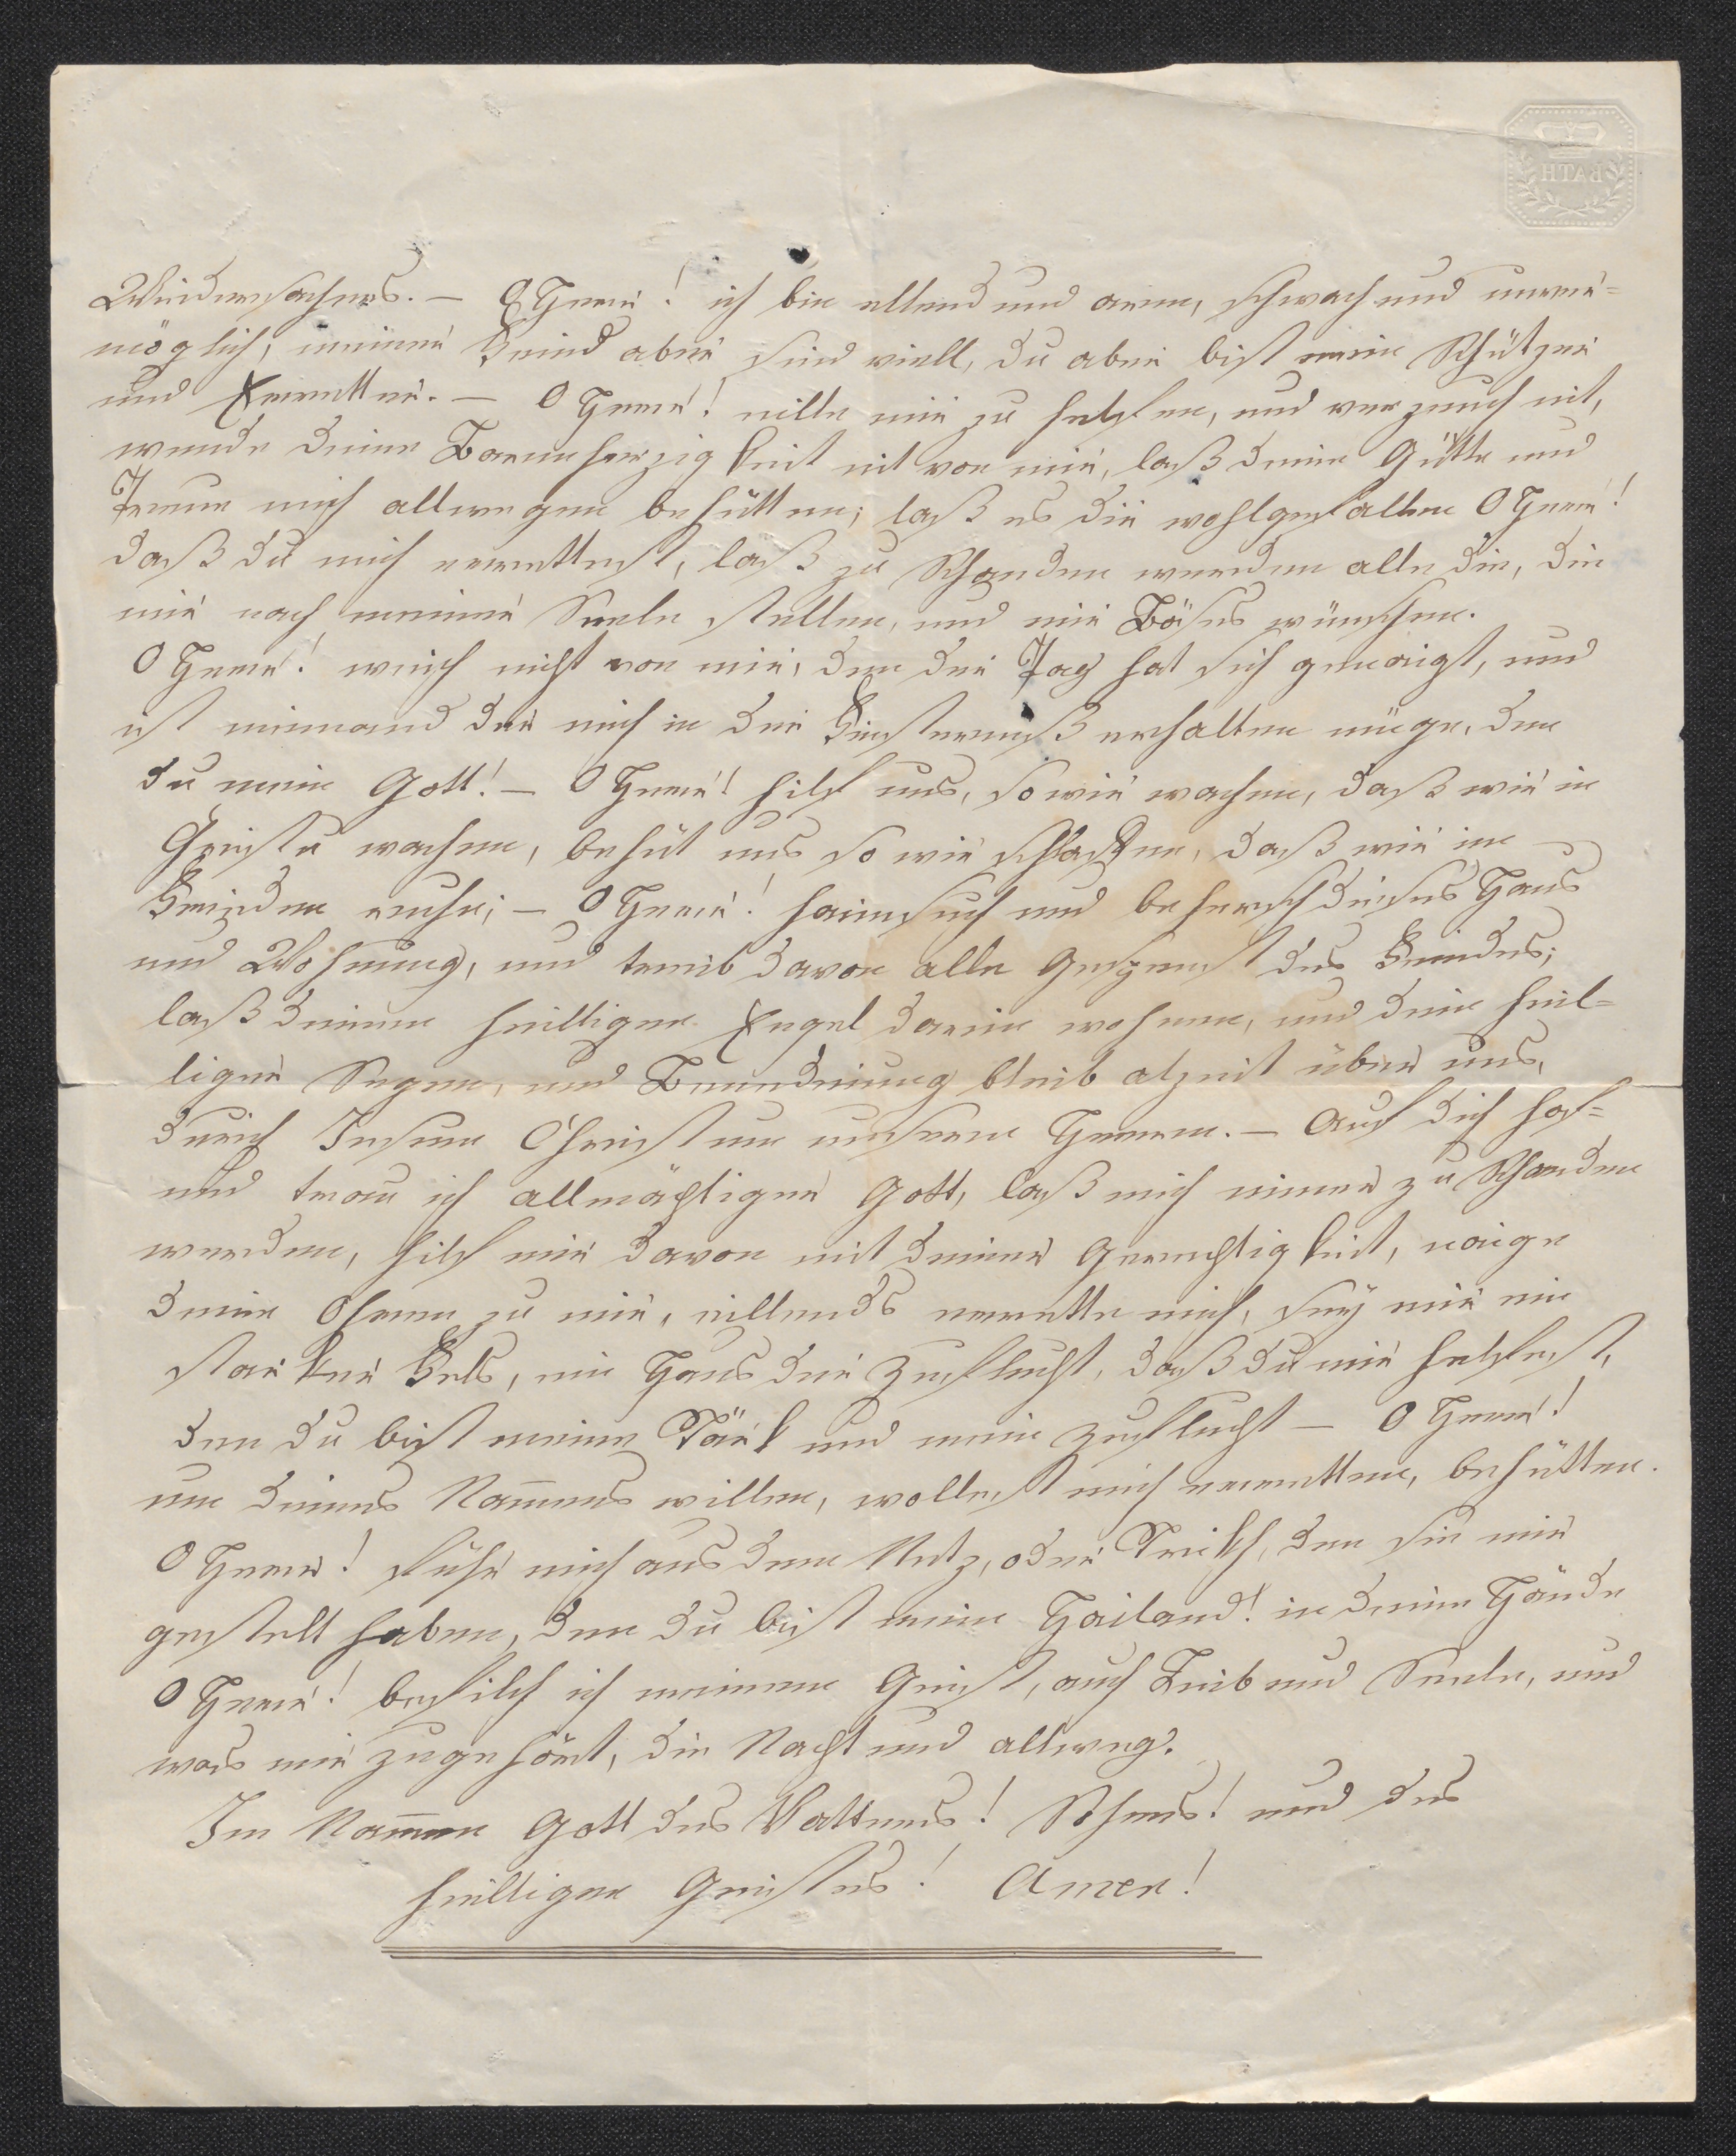 BATH
Widersachers. — O Herr! ich bin ellend und arm, schwach und unver=
möglich, meiner Feind aber sind viell, du aber bist mein Schützer
und Erretter. — O Herr! eille mir zu helfen, und verzeuch nit,
wende deine Barmherzigkeit nit von mir, laß deine Gütte und
Treue mich allwegen behütten; laß es dir wohlgefallen O Herr!
daß du mich errettest, laß zu Schanden werden alle die, die
mir nach meiner Seele stellen, und mir Böses wünschen.
O Herr! weich nicht von mir, den der Tag hat sich genaigt, und
ist niemand der mich in der Finsternuß erhalten müge, den
du mein Gott! — O Herr! hilf uns, so wir wachen, daß wir in
Christo wachen, behüt uns so wir schlaffen, daß wir im
Frieden ruhe; — O Herr! haimsuch und beherrsch dieses Haus
und Wohnung, und treib davon alle Gespenst des Feindes;
laß deinen heilligen Engel darin wohnen, und dein heil=
liger Segen, und Benedeiung bleib alzeit über uns,
durch Jesum Christum unsern Herrn. — Auf dich hof=
und trau ich allmächtiger Gott, laß mich nimer zu Schanden
werden, hilf mir davon mit deiner Gerechtigkeit, naige
deine Ohren zu mir, eillends errette mich, sey mir ein
starker Fels, ein Haus der Zuflucht, daß du mir helfest,
den du bist meine Stärk und mein Zuflucht — O Herr!
um deines Nam̅ens willen, wollest mich erretten, behütten.
O Herr! führ mich aus dem Netz, oder Strikh, den sie mir
gestelt haben, den du bist mein Hailand! in deine Hände
O Herr! befilch ich meinen Geist, auch Leib und Seele, und
was mir zugehört, die Nacht und allweg.
Im Nam̅en Gott des Vatters! Sohns! und des
heilligen Geistes! Amen!